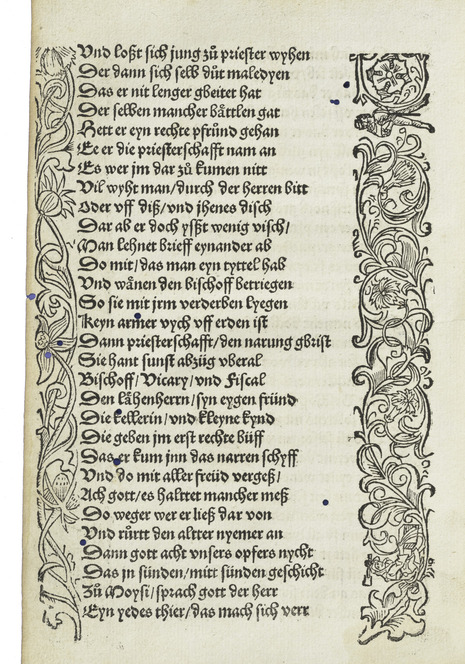 Vnd loßt sich jung zů priester wyhen
Der dann sich selb důt maledyen
Das er nit lenger gbeitet hat
Der selben mancher bättlen gat
Hett er eyn rechte pfründ gehan
Ee er die priesterschafft nam an
Es wer jm dar zů kumen nitt
Vil wyht man/durch der herren bitt
Oder vff diß/vnd jhenes disch
Dar ab er doch yßßt wenig visch/
Man lehnet brieff eynander ab
Do mit/das man eyn tyttel hab
Vnd wänen den bischoff betriegen
So sie mit jrm verderben lyegen
Keyn armer vych vff erden ist
Dann priesterschafft/den narung gbrist
Sie hant sunst abzüg vberal
Bischoff/Vicary/vnd Fiscal
Den lähenherrn/syn eygen fründ
Die kellerin/vnd kleyne kynd
Die geben jm erst rechte büff
Das er kum jnn das narren schyff
Vnd do mit aller freüd vergeß/
Ach gott/es haltter mancher meß
Do weger wer er ließ dar von
Vnd rürtt den altter nyemer an
Dann gott acht vnsers opfers nycht
Das jn sünden/mitt sünden geschicht
Zů Moysi/sprach gott der herr
Eyn yedes thier/das mach sich verr